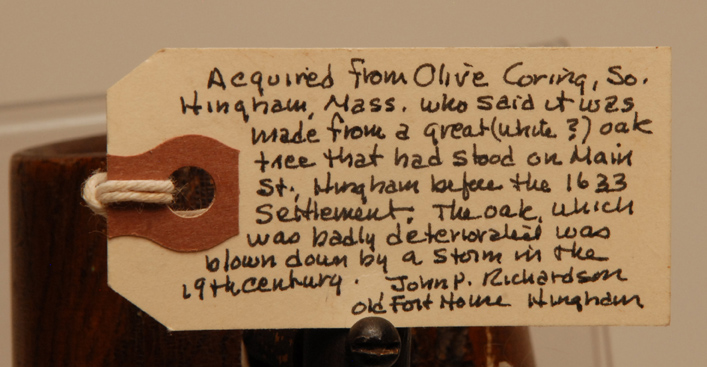 Acquired from Olive Coring, So.
Hingham, Mass. who said it was
made from a great (white ?) oak
tree that had stood on Main
St., Hingham before the 1633
Settlement. The oak, which
was badly deteriorated was
blown down by a storm in the
19th century. John P. Richardson
Old Fort House Hingham